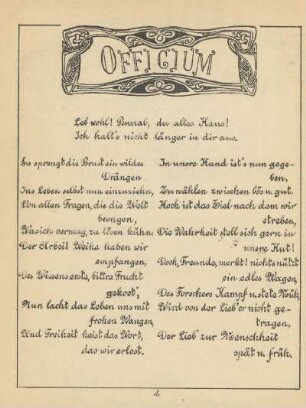 OFFICIUM
Leb wohl! Pennal, du altes Haus!
Ich halt's nicht länger in dir aus.
Es sprengt die Brust ein wildes
Drängen
Ins Leben selbst nun einzuziehn,
Von allen Fragen, die die Welt
bewegen,
Was ich vermag, zu lösen kühn.
Der Arbeit Weihe haben wir
empfangen,
Des Wissens erste, bittre Frucht
gekost',
Nun lacht das Leben uns mit
frohen Wangen,
Und Freiheit heist das Wort,
das wir erlost.
In unsre Hand ist's nun gege-
ben,
Zu wählen zwischen bös u. gut.
Hoch ist das Ziel nach dem wir
streben,
Die Wahrheit stell sich gern in
unsre Hut!
Doch, Freunde, merkt! nichts nützt
ein edles Wagen,
Des Forschers Kampf u. stete Müh,
Wird von der Lieb' er nicht ge-
tragen,
Der Lieb' zur Menschheit
spät u. früh.